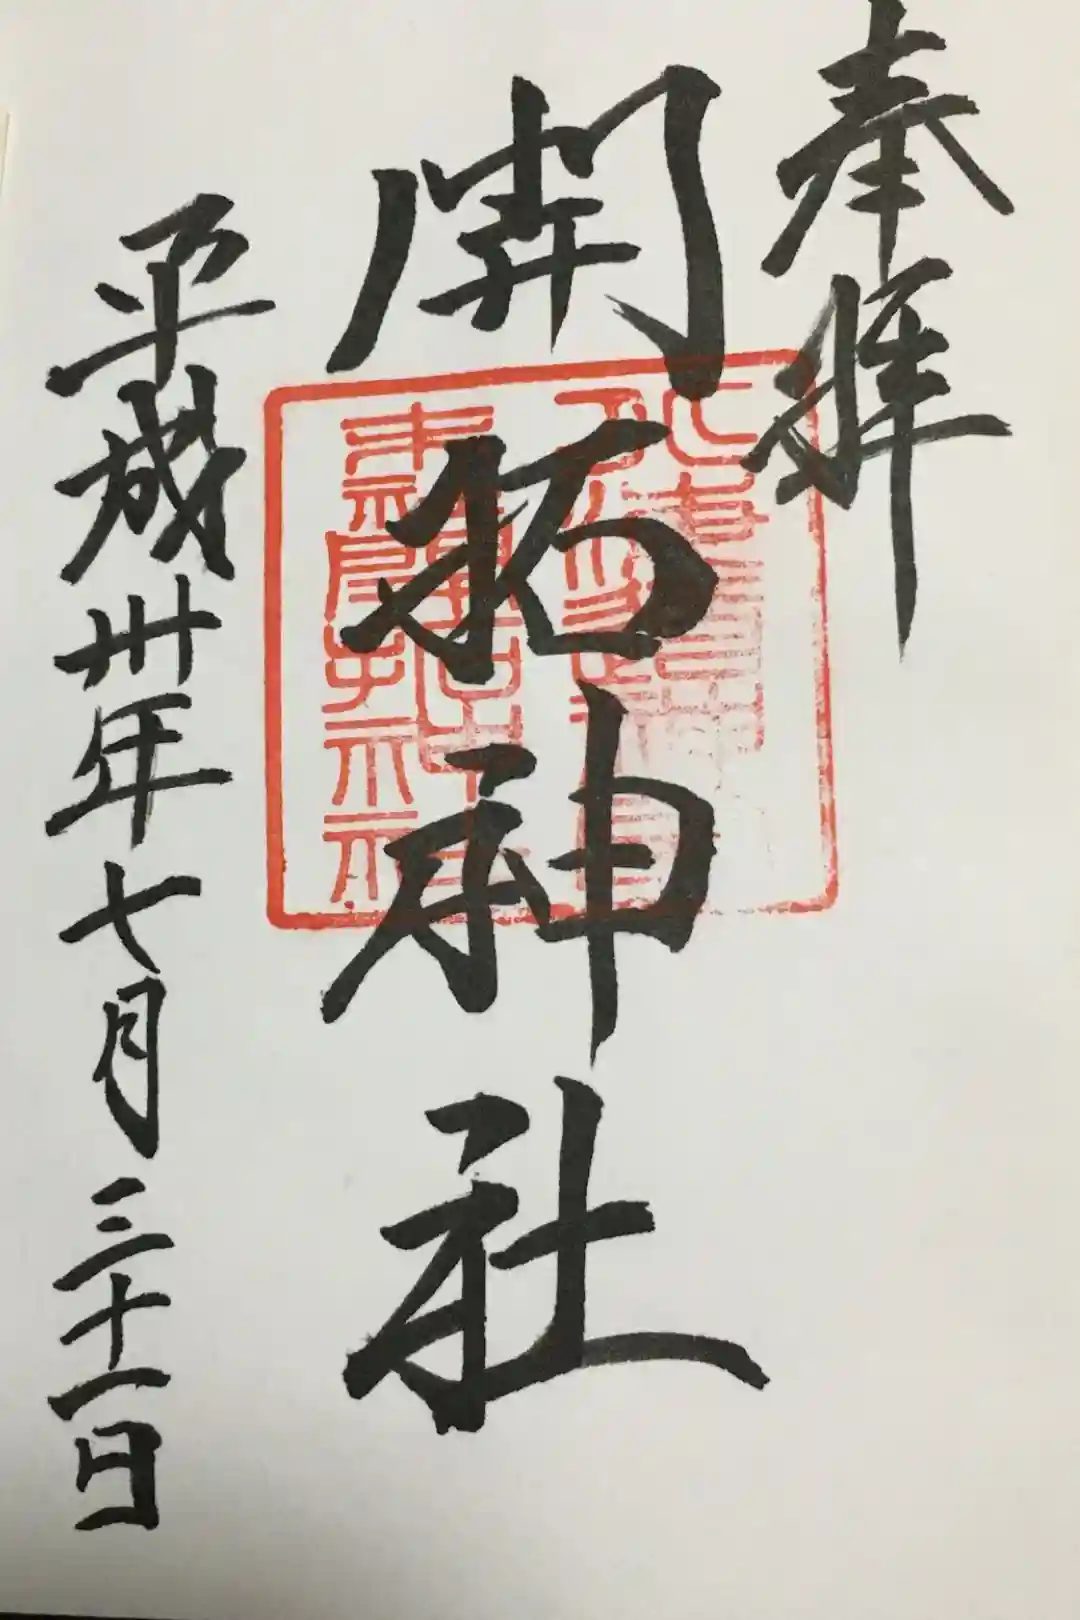 奉拝
開拓神社
平成卅年七月三十一日